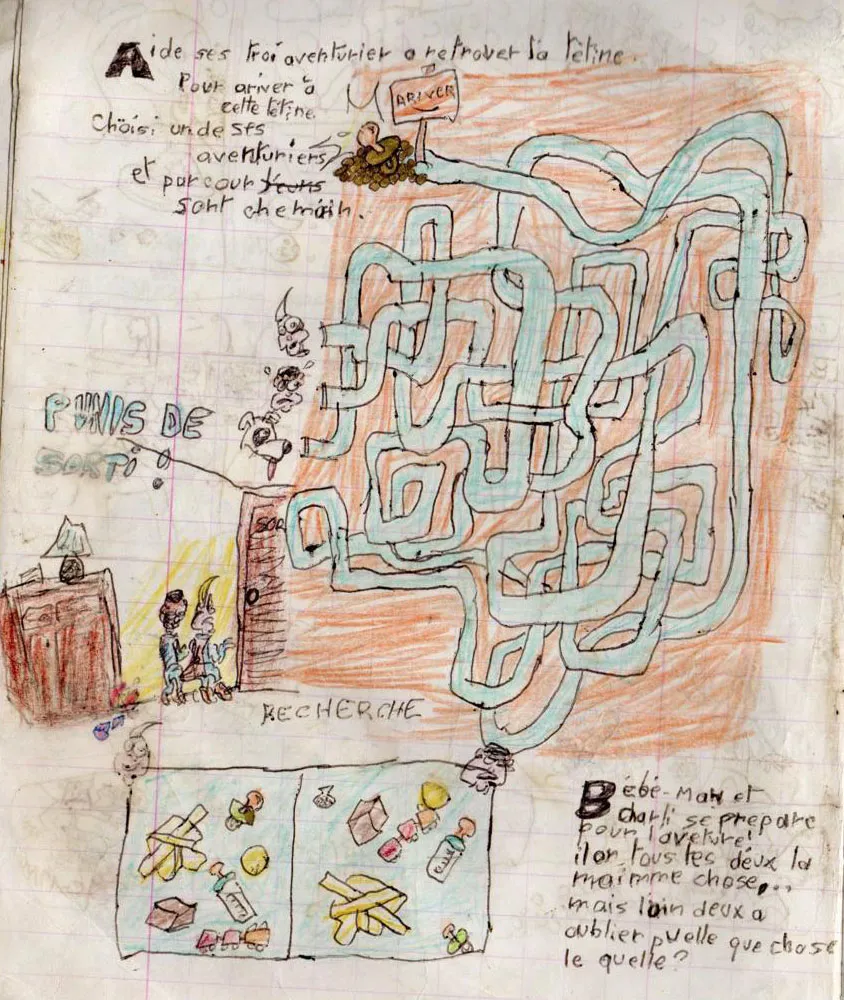 Aide ses troi aventurier a retrover la têtine.
Pour ariver à
cette têtine.
Choisi un de ses
aventuriers
et parcour
sont chemain.
ARIVER
PUNIS DE
SORTI !
SOR
RECHERCHE
Bébé-Man et
charli se prepare
pour l'aveture!
il on tous les deux la
maimme chose...
mais l'uin deux a
oublier puelle que chose
le quelle?